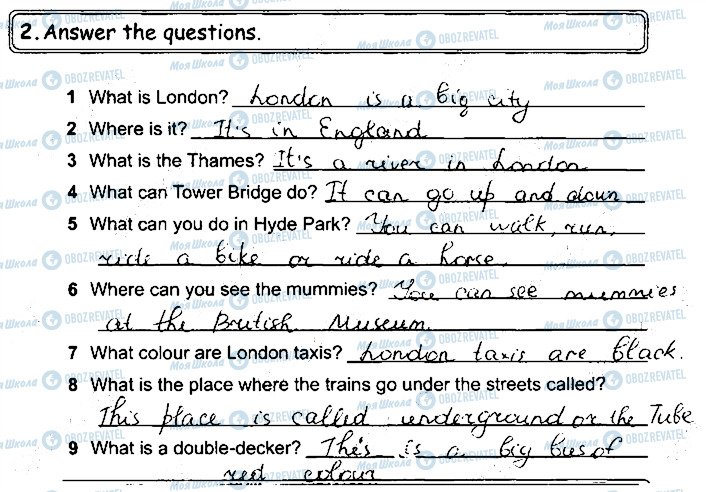 2. Answer the questions.
1 What is London? London is a big city
2 Where is it? It's in England
3 What is the Thames? It's a river in London
4 What can Tower Bridge do? It can go up and down
5 What can you do in Hyde Park? You can walk, run,
ride a bike or ride a horse.
6 Where can you see the mummies? You can see mummies
at the British Museum.
7 What colour are London taxis? London taxis are black.
8 What is the place where the trains go under the streets called?
This place is called underground or the Tube
9 What is a double-decker? This is a big bus of
red colour